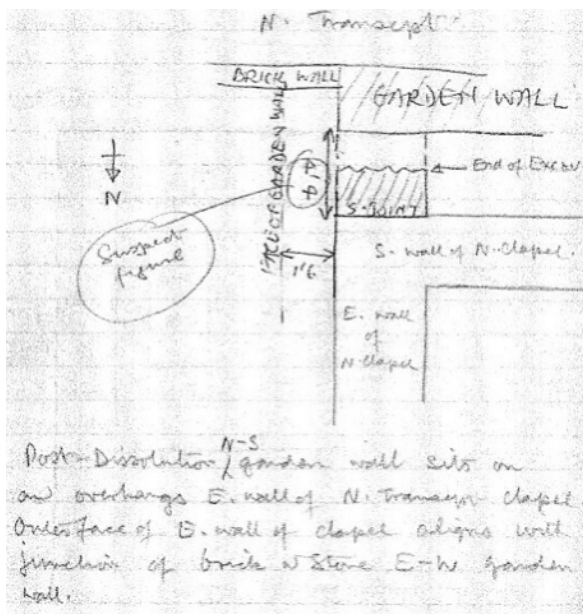 N. Transept
BRICK WALL
GARDEN WALL
End of Excav
N
4'4
S. JOINT
Suspect
figure
GARDEN WALL
1'9
S. wall of N. Chapel.
E. wall
of
N. Chapel
N-S
Post-Dissolution garden wall sits on
an overhangs E. wall of N. Transept chapel
Outer face of E. wall of chapel aligns with
junction of brick & Stone E-W garden
wall.